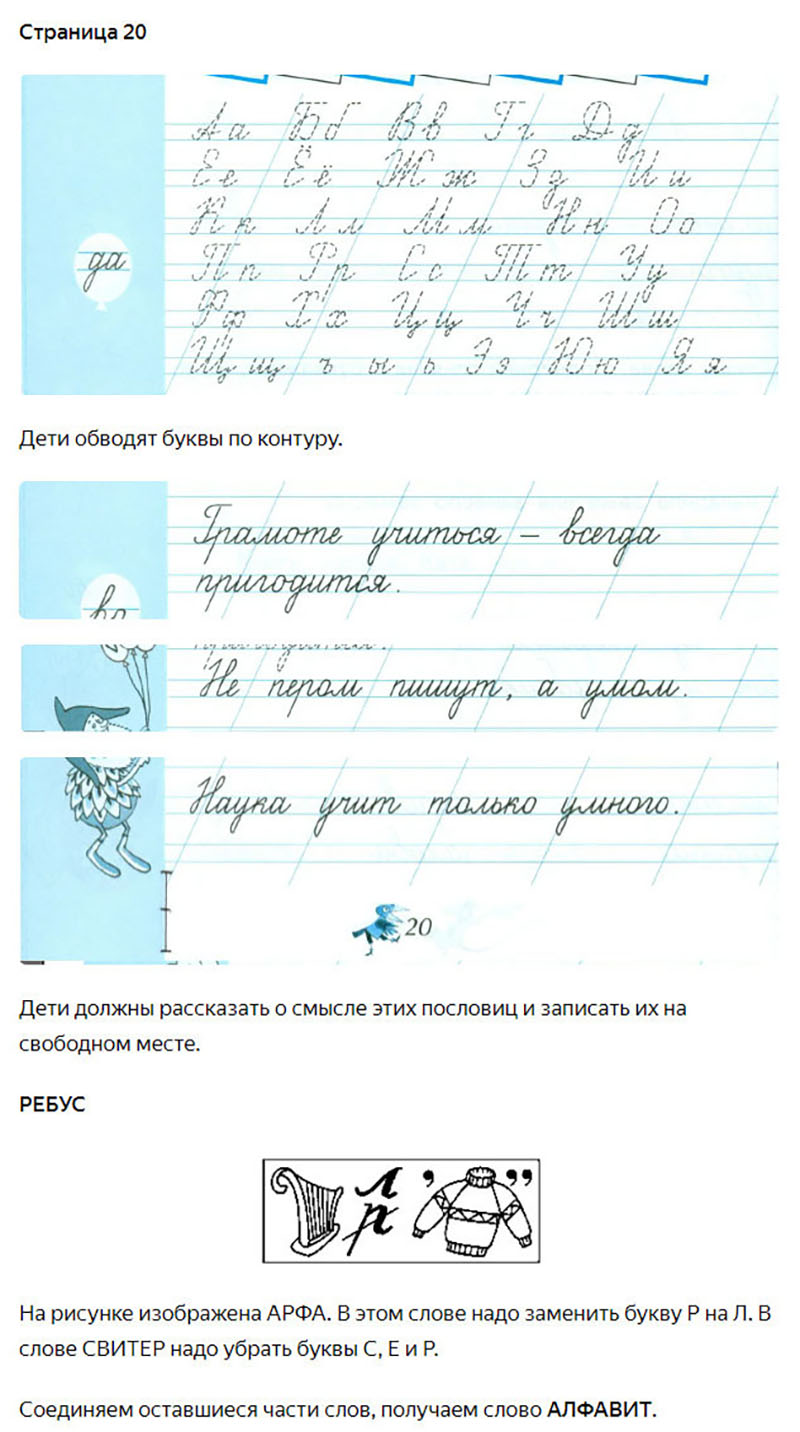 Страница 20
Аа Бб Вв Гг Дд
Ее Ёё Жж Зз Ии
Кк Лл Мм Нн Оо
да
Пп Рр Сс Тт Уу
Фф Хх Цц Чч Шш
Щщ ъ ы ь Ээ Юю Яя
Дети обводят буквы по контуру.
Грамоте учиться – всегда
пригодится.
Не пером пишут, а умом.
Наука учит только умного.
20
Дети должны рассказать о смысле этих пословиц и записать их на
свободном месте.
РЕБУС
л
р
, ,,
На рисунке изображена АРФА. В этом слове надо заменить букву Р на Л. В
слове СВИТЕР надо убрать буквы С, Е и Р.
Соединяем оставшиеся части слов, получаем слово АЛФАВИТ.